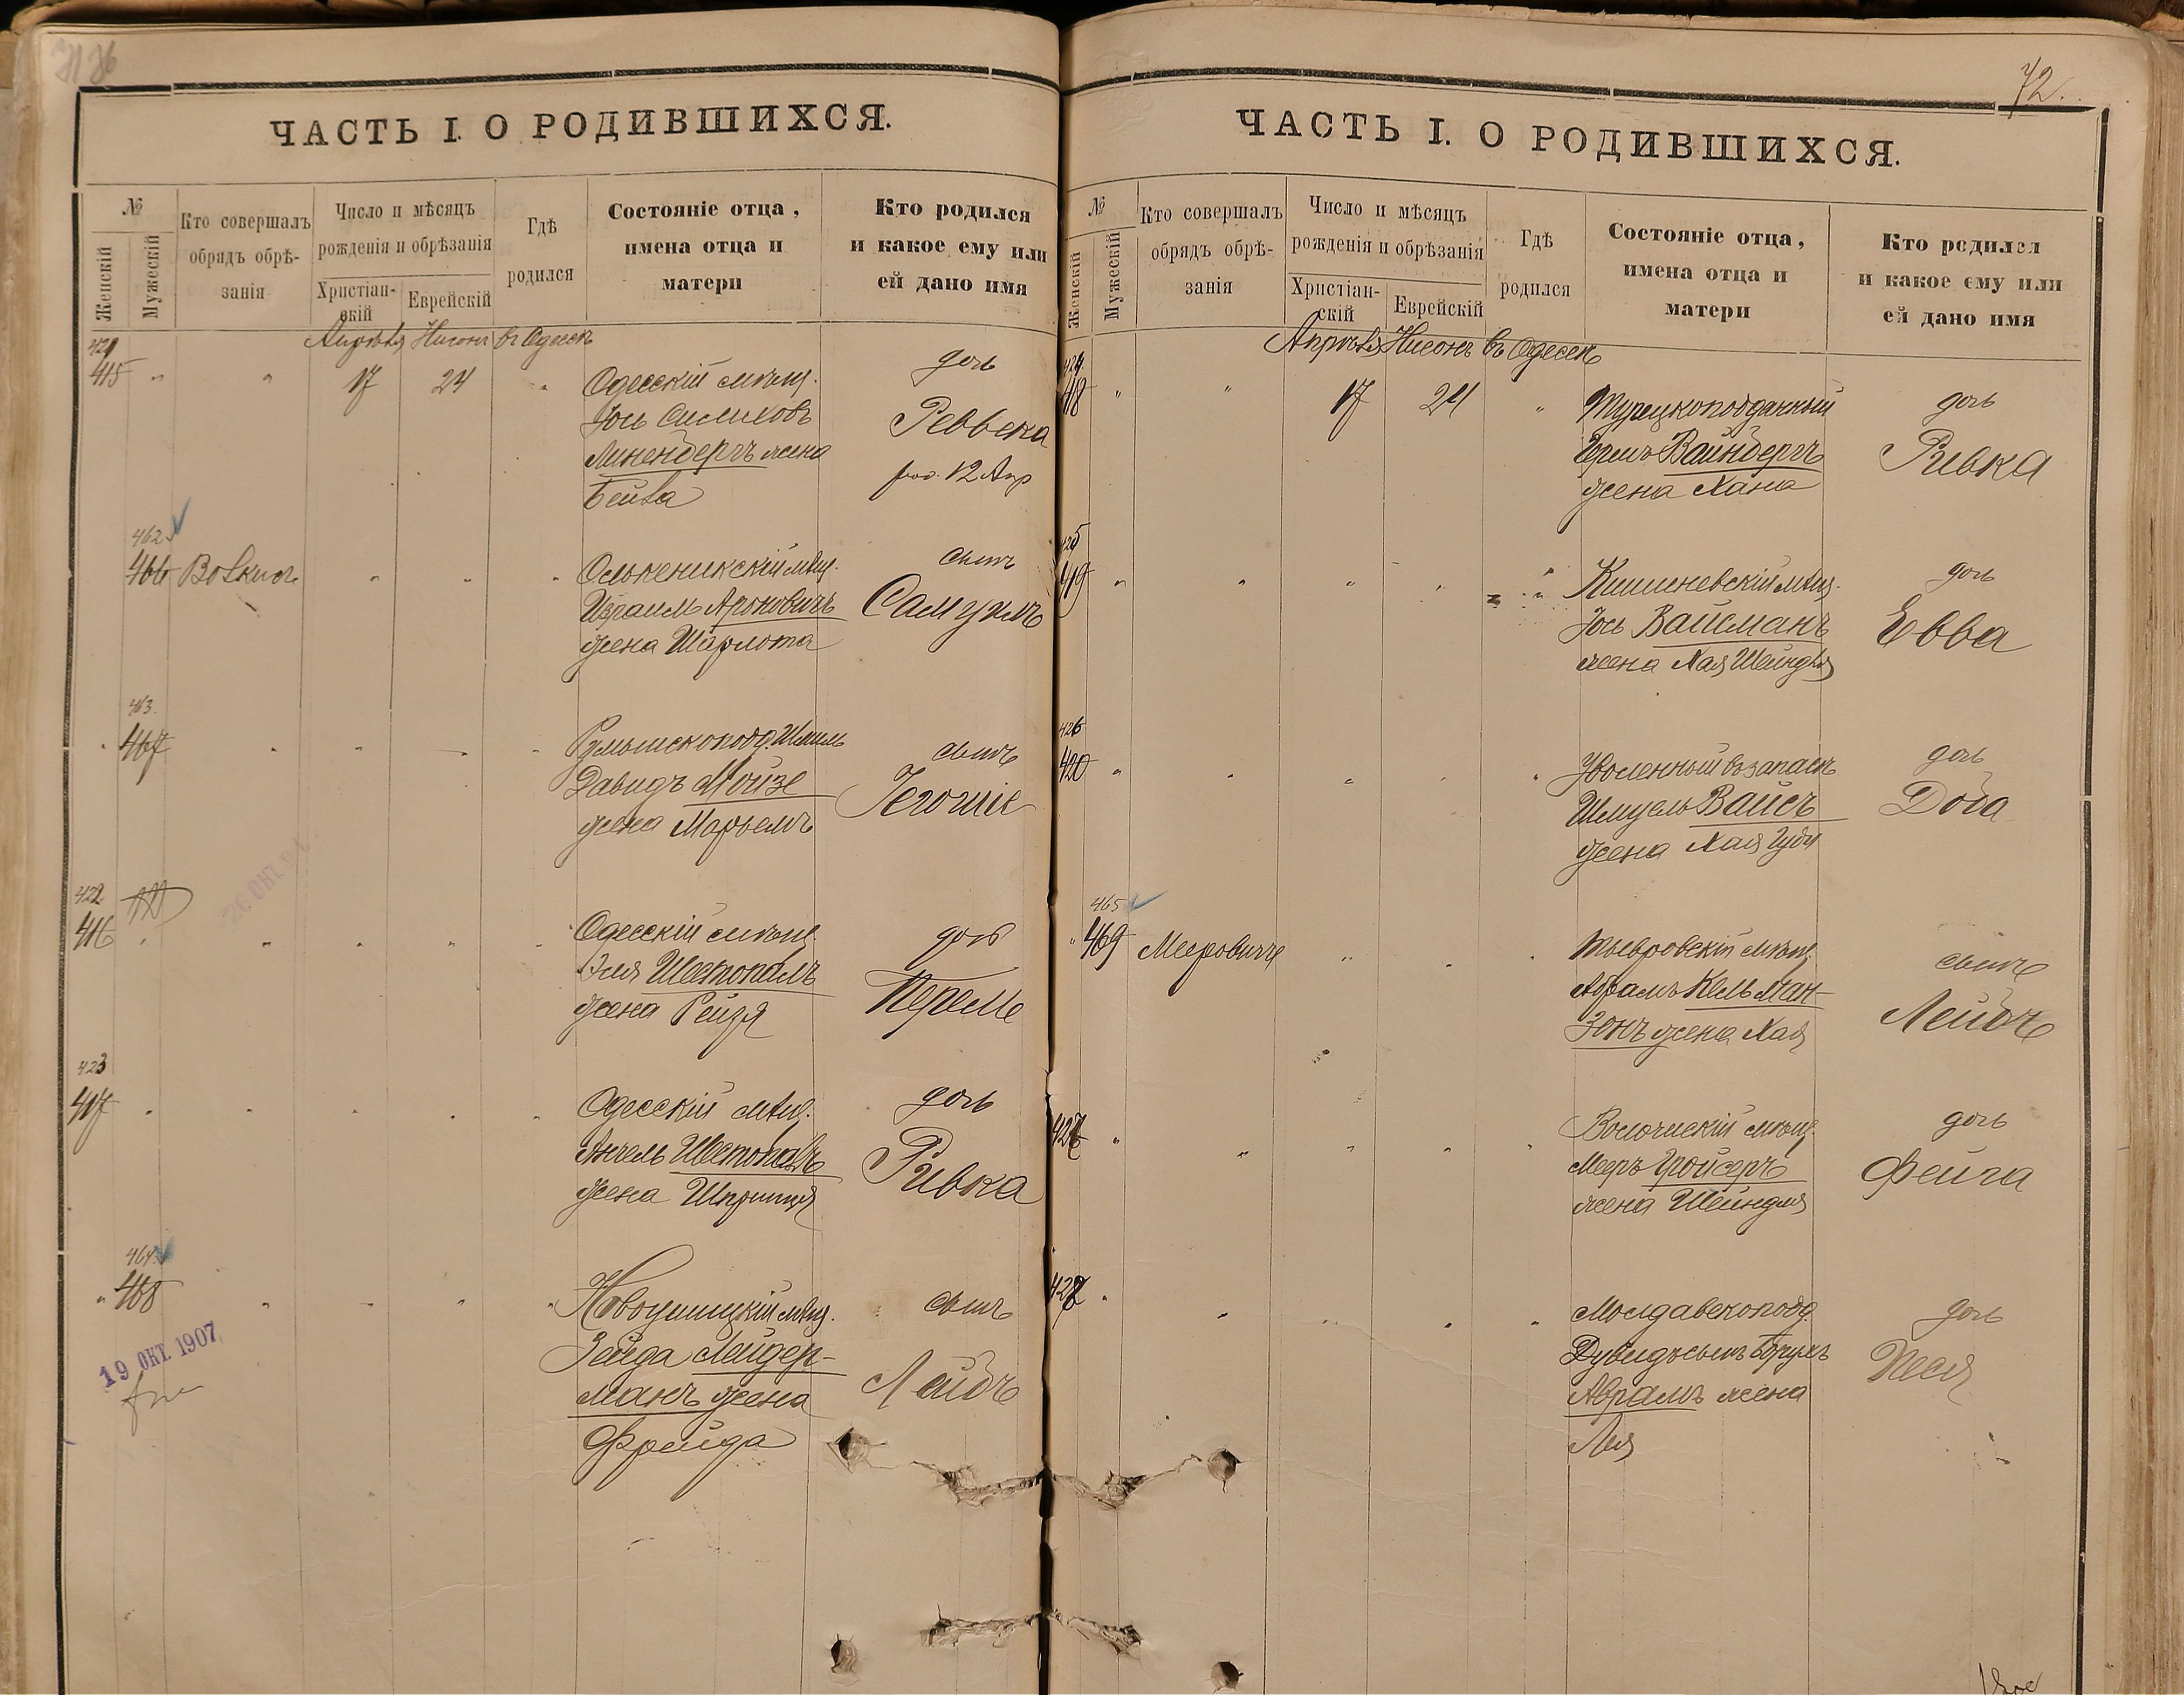 ЧАСТЬ I. О РОДИВШИХСЯ.
№
Женскій
Мужескій
Кто совершалъ
обрядъ обрѣ-
занія
Число и мѣсяцъ
рожденія и обрѣзанія
Христіан-
скій
Еврейскій
Гдѣ
родился
Состояніе отца,
имена отца и
матери
Кто родился
и какое ему или
ей дано имя
Апрѣля Нисонъ въ Одессѣ
421
415 " " 17 24 "
Одесскій мѣщ.
Іось
Линенбергъ жена
Бейла
дочь
Реввека
род. 12 Апр
462
466 " " "
Олькеникскій мѣщ.
Израиль Ароновичъ
жена Шарлота
сынъ
Самуилъ
463.
467
Румынскопод. Шмиль
Давидъ Мойзе
жена Марьемъ
сынъ
422
416
20 ОКТ
Одесскій мѣщ.
Эля Шестопалъ
жена Рейзя
дочь
Перель
423
417
Одесскій мѣщ.
Анчель Шестопалъ
жена Шпринця
дочь
Ривка
464
468
19 ОКТ. 1907
Новоушицкій мѣщ.
Зейда Лейдер-
манъ жена
Фрейда
сынъ
Лейбъ
72.
ЧАСТЬ I. О РОДИВШИХСЯ.
№
Женскій
Мужескій
Кто совершалъ
обрядъ обрѣ-
занія
Число и мѣсяцъ
рожденія и обрѣзанія
Христіан-
скій
Еврейскій
Гдѣ
родился
Состояніе отца,
имена отца и
матери
Кто родился
и какое ему или
ей дано имя
Апрѣля Нисонъ въ Одессѣ
424
418 " " 17 24 "
Турецкоподданный
Вайнбергъ
жена Хана
дочь
Ривка
425
419 " " " " "
Кишиневскій мѣщ.
Іось Вайсманъ
жена Хая Шейндля
дочь
Евва
426
420
Уволенный въ запасъ
Шмуель Вайсъ
жена Хая
дочь
Доба
465
469 Мееровичъ
мѣщ.
Абрамъ Кельман-
зонъ жена Хая
сынъ
Лейбъ
427
Волочискій мѣщ.
Мееръ Гройсеръ
жена Шейндля
дочь
Фейга
428
Молдавскопод.
Дувидъ сынъ
Абрамъ жена
Лея
дочь
Песя